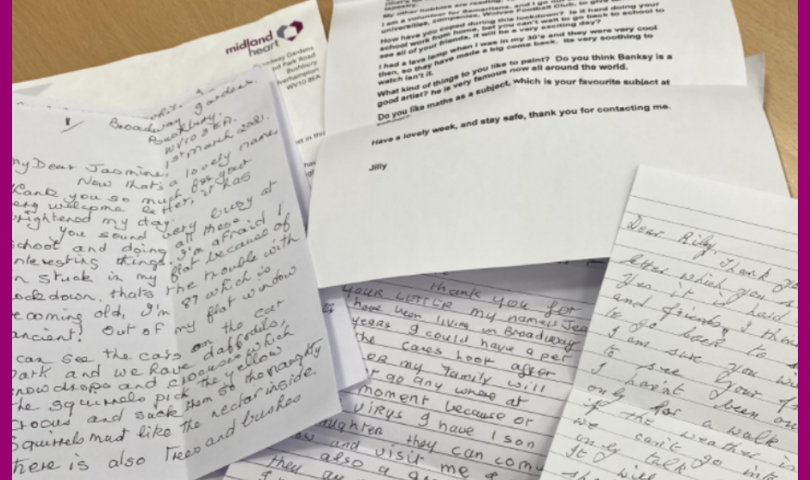 midland
heart
Broadway Gardens
Park Road
Bushbury
Wolverhampton
WV10 8EA
Broadway Gardens
Bushbury.
1st March 2021.
My Dear Jasmine,
Now that's a lovely name
Thank you so much for your
very welcome letter, it has
brightened my day.
You sound very busy at
school and doing all these
interesting things. I'm afraid I
stuck in my flat because of
lockdown, that's the trouble with
becoming old, I'm 87 which is
ancient! Out of my flat window
can see the cars on the car
park and we have daffodils,
snowdrops and crocuses which
the squirrels pick the yellow
crocus and suck them so the naughty
squirrels must like the nectar inside.
There is also trees and bushes
My other hobbies are reading,
I am a volunteer for
universities, companies,
How have you coped during this lockdown, it is hard doing your
school work from home, but you can't wait to go back to school to
see all of your friends. It will be a very exciting day?
I had a lava lamp when I was in my 30's and they were very cool
then, so they have made a big come back. Its very soothing to
watch isn't it.
What kind of things do you like to paint? Do you think Banksy is a
good artist? he is very famous now all around the world.
Do you like maths as a subject, which is your favourite subject at
Have a lovely week, and stay safe, thank you for contacting me.
Jilly
Thank you for
your letter my name is Jea
have been living in Broadway
years I could have a per
the cares look after
my family will
go any where at
moment because or
virus I have 1 son
they can com
and visit me
also a
they
Dear Riley Thank yo
letter which you s
it is hard
and friends, I thou
to go back to s
I am sure you w
to see your f
I haven't been ou
only for a walk
if the weather is
we can't go int
only talk
It will